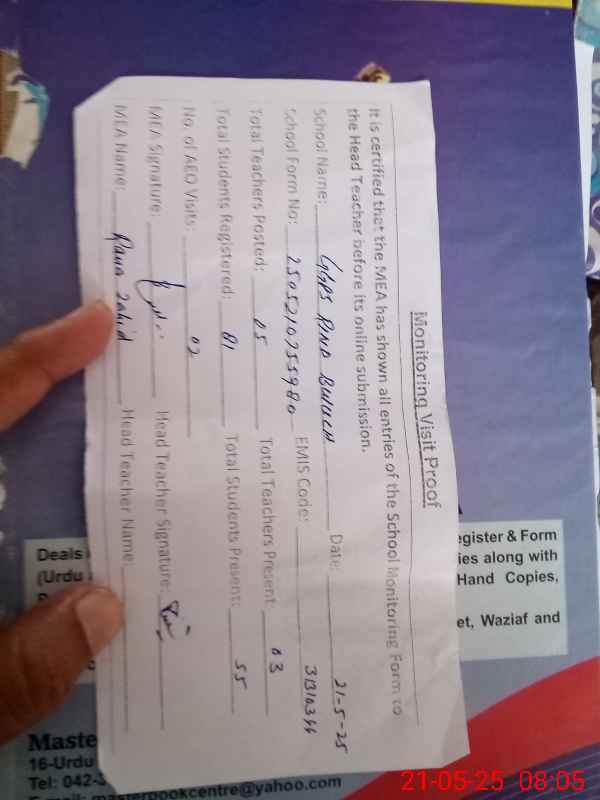 Monitoring Visit Proof
It is certified that the MEA has shown all entries of the School Monitoring Form to
the Head Teacher before its online submission.
School Name: GGPS RIND BULUCH Date: 21-5-25
School Form No: 2505210755980 EMIS Code: 31310366
Total Teachers Posted: 05 Total Teachers Present: 03
Total Students Registered: 81 Total Students Present: 55
No. of AEO Visits: 02
MEA Signature: Head Teacher Signature:
MEA Name: Rana Zahid Head Teacher Name:
egister & Form
ies along with
Hand Copies,
et, Waziaf and
Deals
(Urdu
Maste
16-Urdu
Tel: 042-3
E-mail: masterbookcentre@yahoo.com
21-05-25 08:05